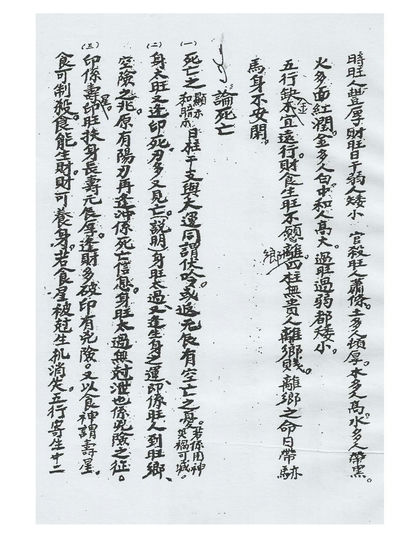 時旺人豐厚財旺日干弱人矮小。官殺旺人蕭條。土多人頓厚。木多人高。水多人帶黑。
火多面紅潤。金多人白中和人高大。過旺過弱都矮小。
五行缺木宜遠行。財食生旺不願離鄉四柱無貴人離鄉賤。離鄉之命日帶馬
馬身不安閒。
論死亡
(一)死亡之顯示和暗示日柱干支與大運同謂伏吟或返元辰有空亡之憂。若係用神災禍可減。
(二)身太旺又逢印死。刃多又見亡。說明身旺太過又逢生身之運印係旺人到旺鄉、
空險之兆。原有陽刃再逢沖係死亡信息。身旺太過無尅洩也係兇險之征。
(三)印係壽星印旺扶身長壽元辰厚。逢財多破印有兇險。又以食神謂壽星。
食可制殺。食能生財。財可養身。若食星被尅生机消失。五行寄生十二